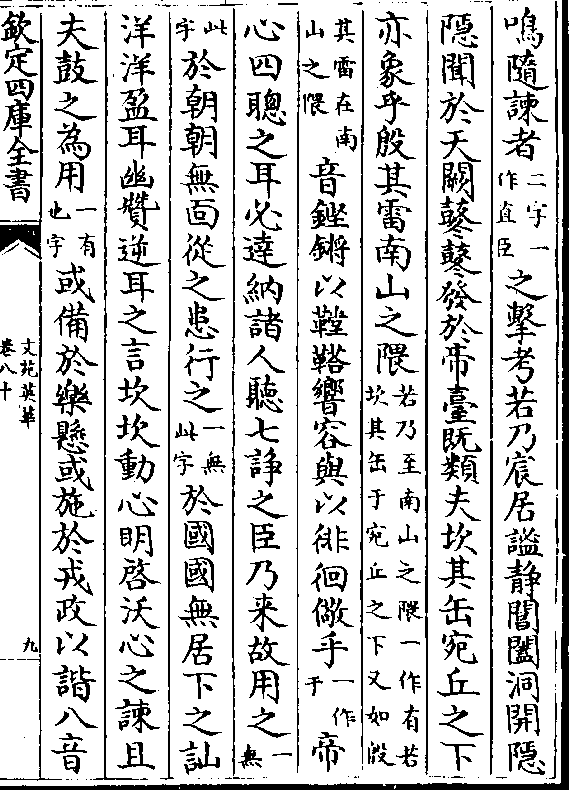 鳴隨諫者二字一作直臣之擊考若乃宸居謐静閶闔洞開隠
隠聞於天闕鼕鼕發於帝臺既類夫坎其缶宛丘之下
亦象乎殷其雷南山之隈若乃至南山之隈一作有若坎其缶于宛丘之下又如殷
其雷在南山之隈音鏗鏘以鞺鞳響容與以徘徊儆乎一作于帝
心四聰之耳必達納諸人聽七諍之臣乃来故用之一無
此字於朝朝無面從之患行之一無此字於國國無居下之訕
洋洋盈耳幽贊逆耳之言坎坎動心明啓沃心之諫且
夫鼓之為用一有也字或備於樂懸或施於戎政以諧八音
欽定四庫全書
文苑英華
卷八十
九